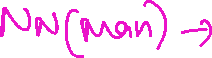 NN(man) →